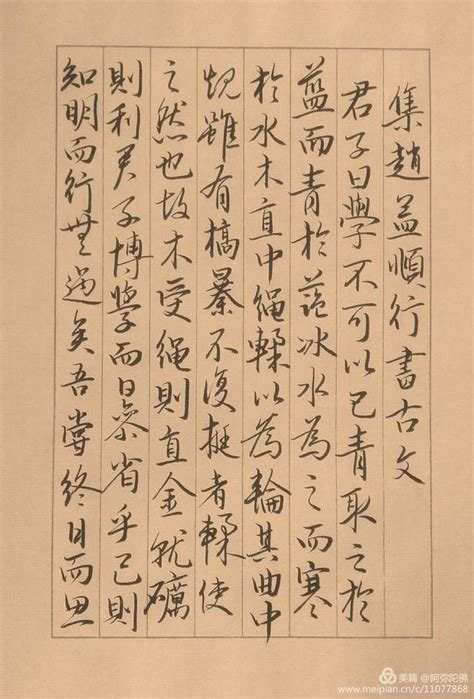 集趙孟頫行書古文
君子曰學不可以已青取之於
藍而青於藍冰水為之而寒
於水木直中繩輮以為輪其曲中
規雖有槁暴不復挺者輮使
之然也故木受繩則直金就礪
則利君子博學而日參省乎己則
知明而行無過矣吾嘗終日而思
美篇 @阿弥陀佛
www.meipian.cn/c/11077868